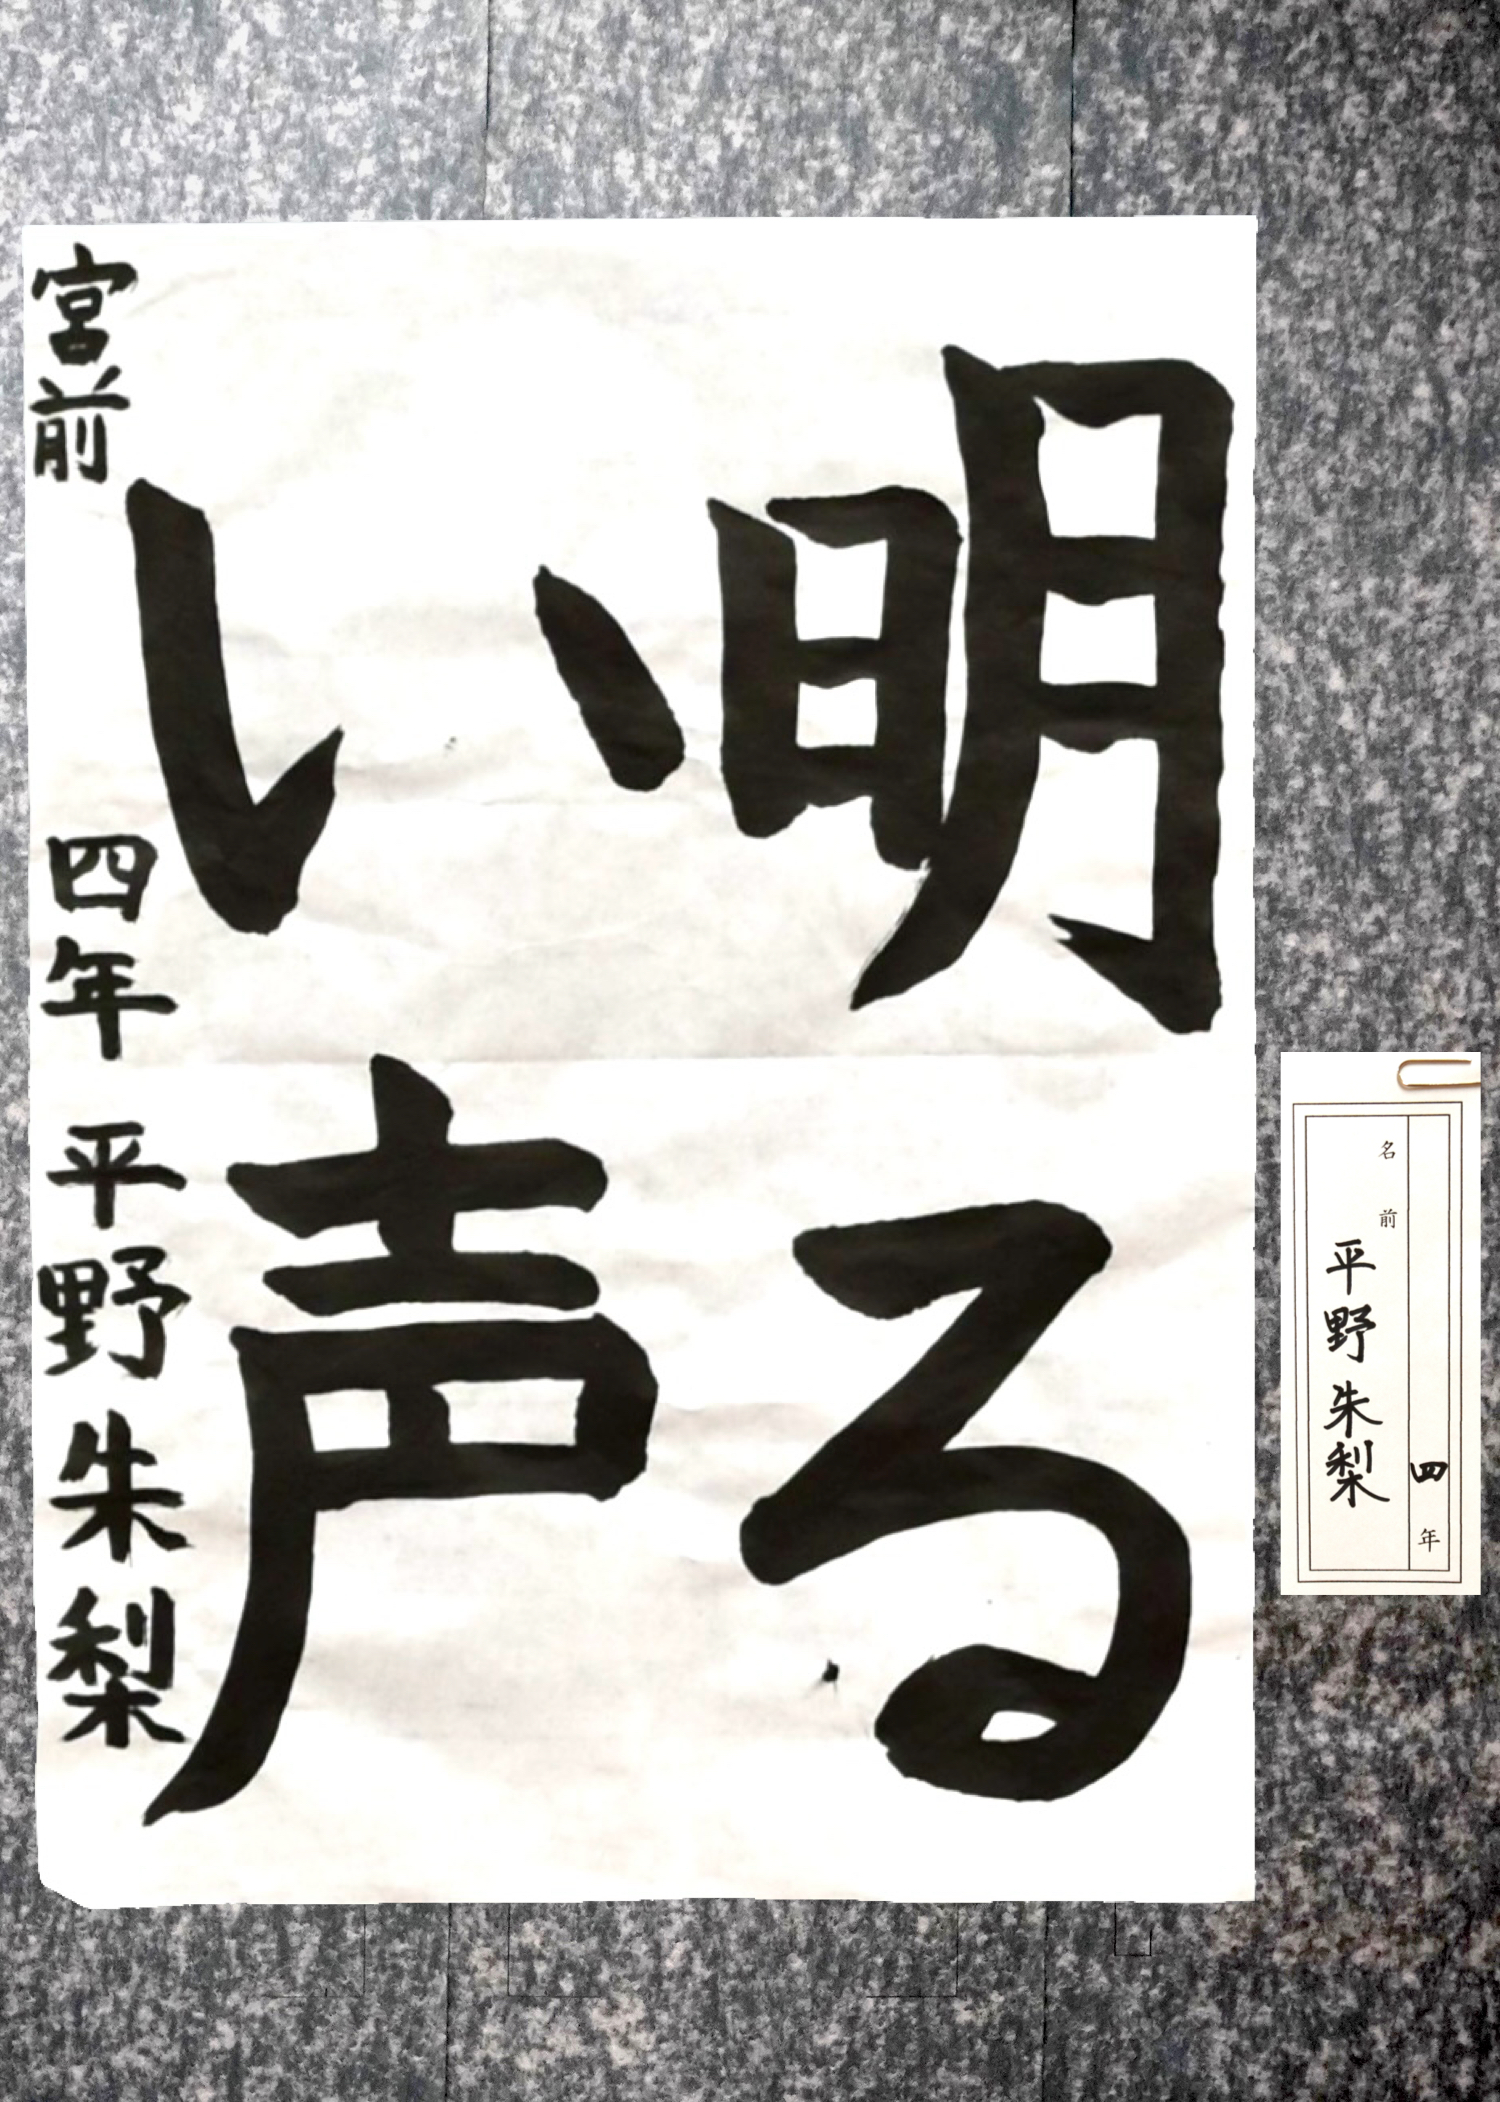 明る
い声
宮前 四年 平野朱梨
四年
名前 平野朱梨